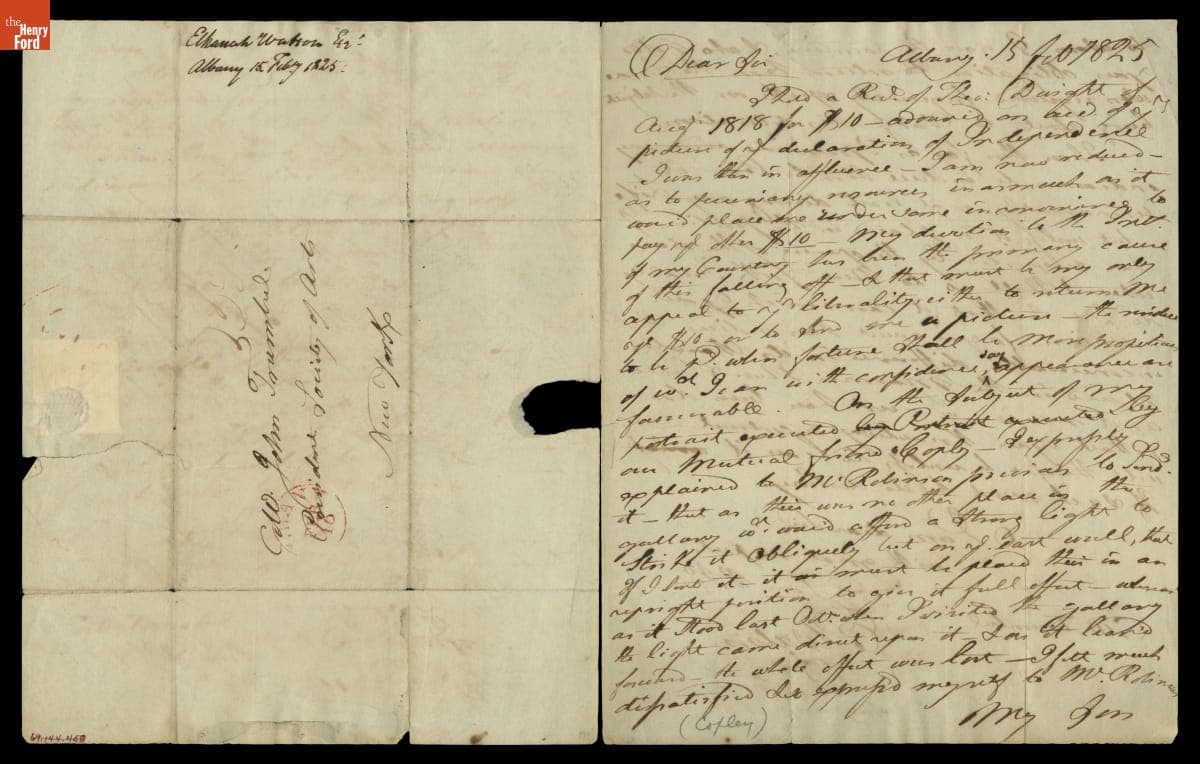 the
Henry
Ford
Elkanah Watson Esqr
Albany 15 Feby 1825.
Col. John Trumbull
President Society of Arts
New York
64.144.468
Dear Sir Albany. 15 Feb 1825
I hold a Rect. of Theo: Dwight of
Augt 1818 for $10 - advanced on acct. of yr
picture of ye declaration of Independence
I was then in affluence - I am now reduced -
as to pecuniary resources in as much as it
would place me under some inconvenience to
pay ye other $10 - My devotion to the Intt.
of my Country has been the primary cause
of this falling off - & that must be my only
appeal to yr liberality either to return me
ye $10 - or to send me a picture - the residue
to be pd. when fortune shall be more propitious
of wd. I can with confidence say appearances are
favourable. On the Subject of my
portrait executed by
our Mutual friend Copley - I expressly
explained to Mr. Robinson previous to send.
it - that as there was no other place in the
gallary wd. would afford a strong light to
strike it obliquely but on ye East wall, that
if I sent it - it must be placed there in an
upright position to give it full effect - whereas
as it stood last Octr. when I visited the gallary
the light came direct upon it - & as it leaned
forward - the whole effect was lost - I felt much
dissatisfied & expressed myself to Mr. Robinson
My Son
(Copley)